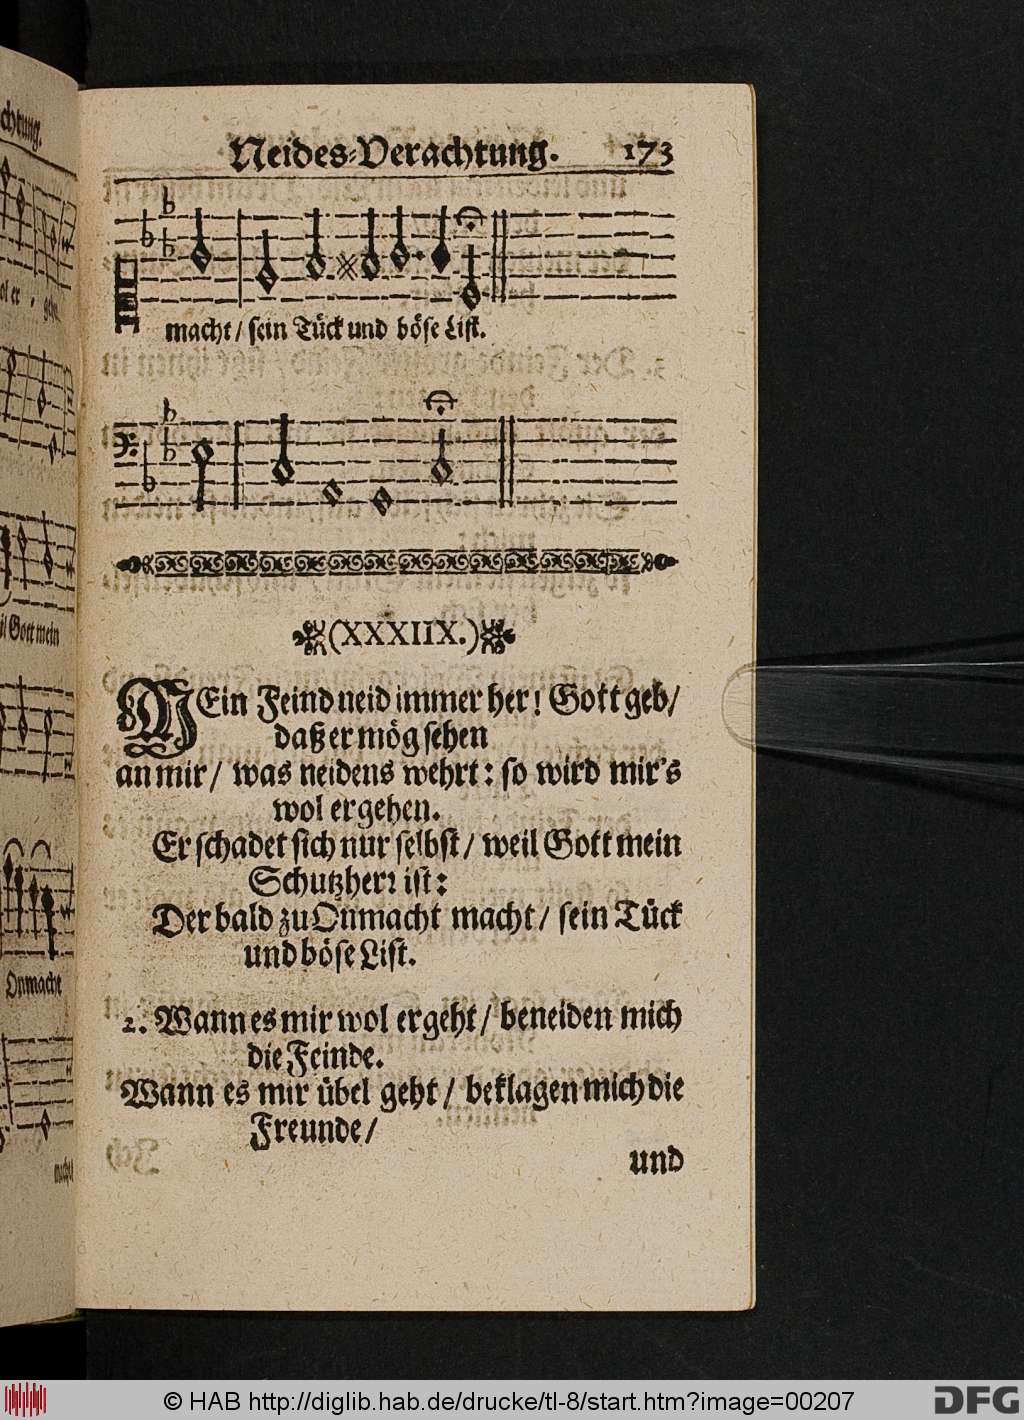 Neides-Verachtung. 173
macht / sein Tück und böse List.
(XXXIIX.)
MEin Feind neid immer her! Gott geb /
daß er mög sehen
an mir / was neidens wehrt: so wird mir's
wol ergehen.
Er schadet sich nur selbst / weil Gott mein
Schutzherr ist:
Der bald zu Onmacht macht / sein Tück
und böse List.
2. Wann es mir wol ergeht / beneiden mich
die Feinde.
Wann es mir übel geht / beklagen mich die
Freunde /
und
© HAB http://diglib.hab.de/drucke/tl-8/start.htm?image=00207
DFG